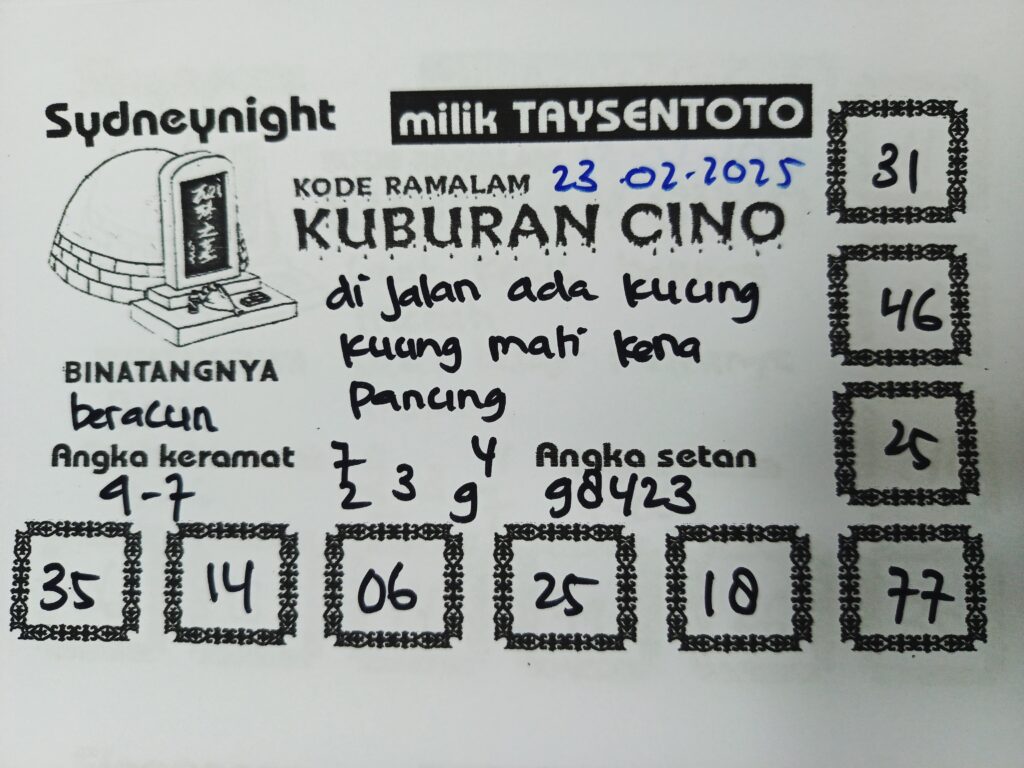 Sydneynight
milik TAYSENTOTO
KODE RAMALAM 23-02-2025
KUBURAN CINO
di jalan ada kucing
kucing mati kena
pancing
BINATANGNYA
beracun
Angka keramat
9-7
7 4
2 3 9
Angka setan
98423
31
46
25
35 14 06 25 18 77